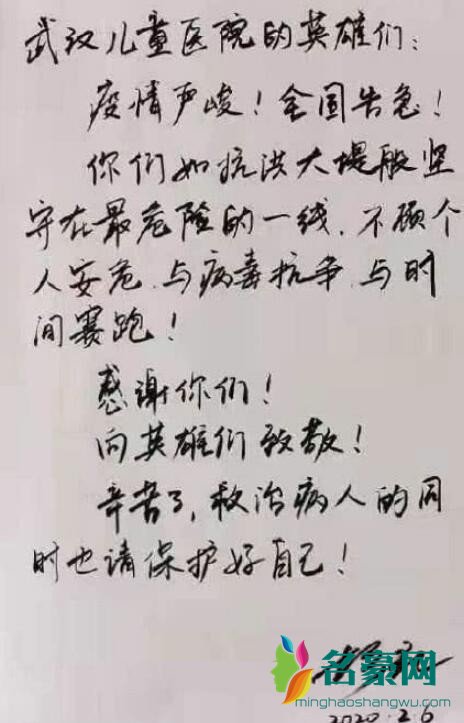 武汉儿童医院的英雄们：
疫情严峻！全国告急！
你们如抗洪大堤般坚
守在最危险的一线，不顾个
人安危，与病毒抗争，与时
间赛跑！
感谢你们！
向英雄们致敬！
辛苦了，救治病人的同
时也请保护好自己！
名豪网
minghaoshangwu.com
2020.2.6